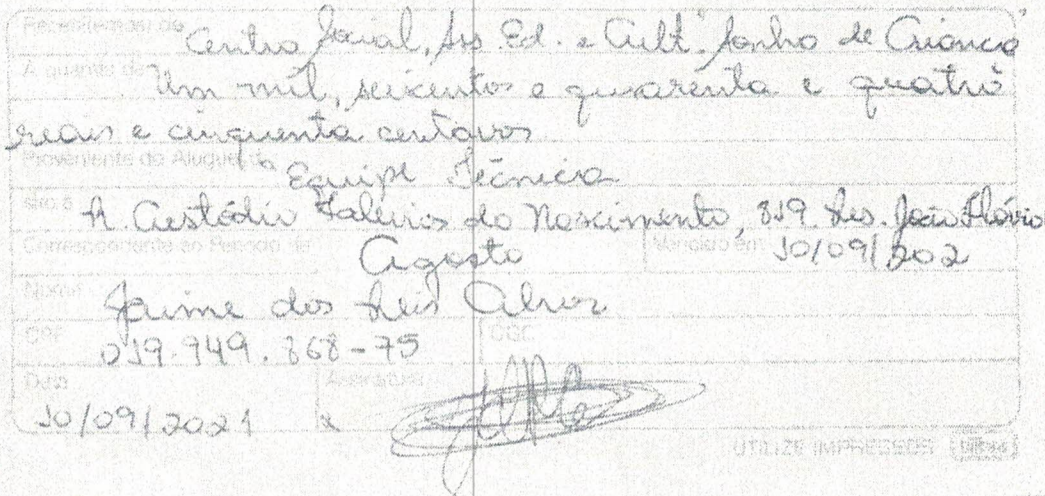 Recebi(emos) de Centro Social, Ass. Ed. e Cult. "Sonho de Criança"
A quantia de Um mil, seiscentos e quarenta e quatro
reais e cinquenta centavos
Proveniente do Aluguel da Equipe Técnica
sito à R. Custódio Faleiros do Nascimento, 819 Res. João Flávio
Correspondente ao Período de Agosto Vencido em 10/09/202
Nome Jaime dos Reis Alves
CPF 019.949.868-75 CGC
Data 10/09/2021 Assinatura x
UTILIZE IMPRESSOS